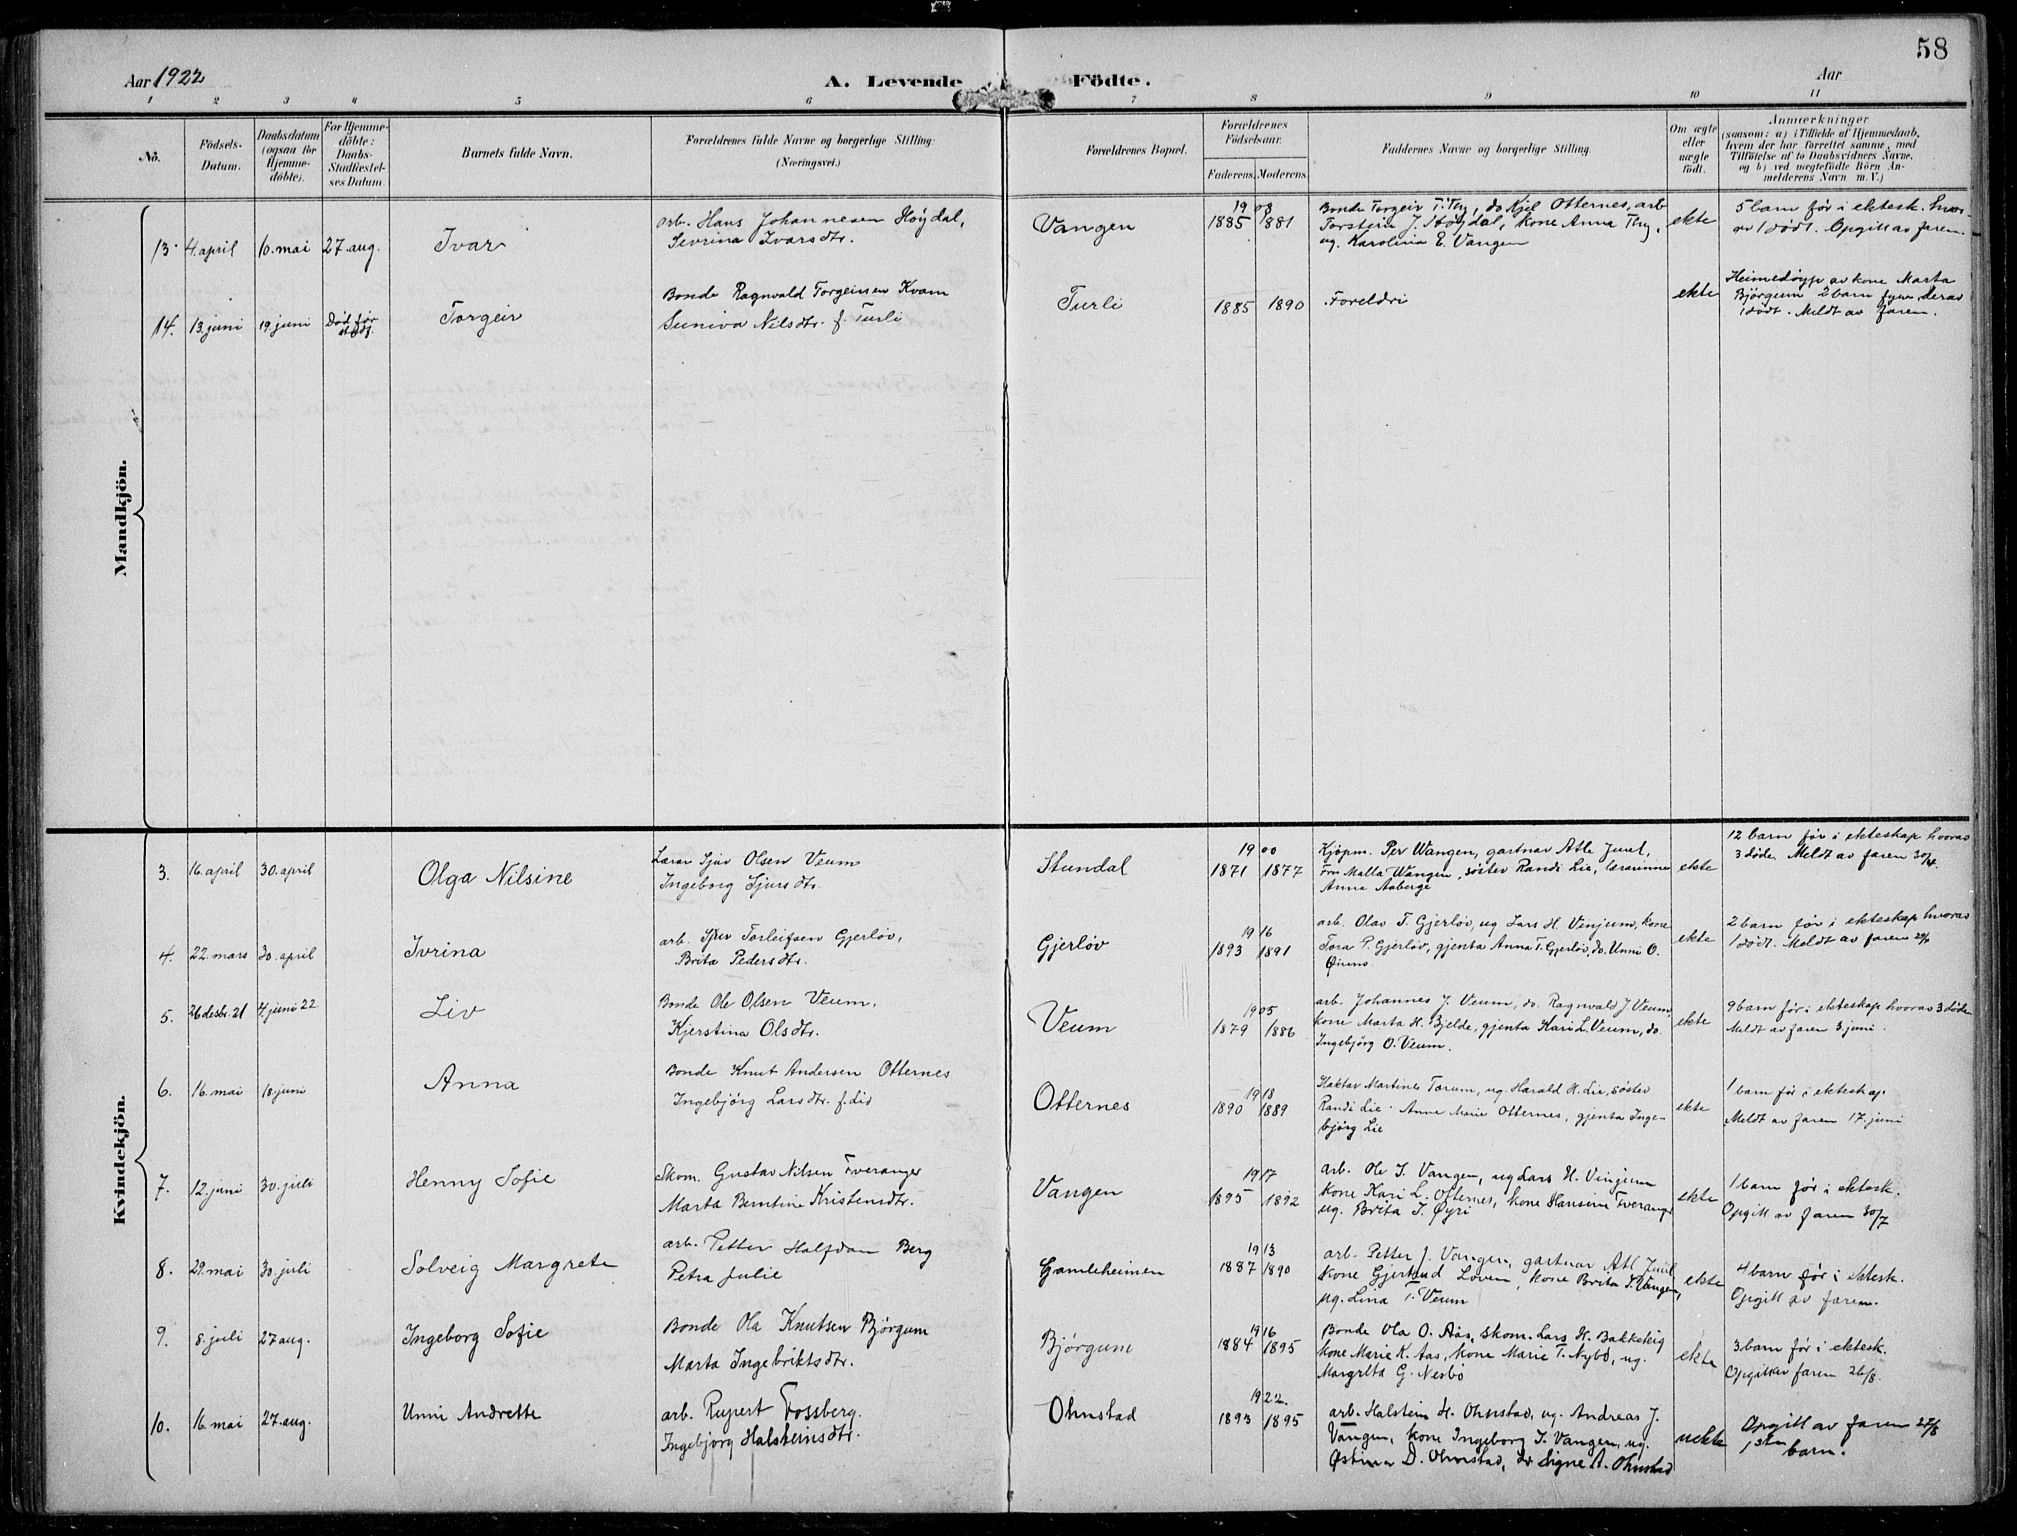 58
Aar 1922
A. Levende Födte.
Aar
1 2 3 4 5 6 7 8 9 10 11
No.
Födsels-
Datum.
Daabsdatum
(ogsaa for
Hjemme-
döbte).
For Hjemme-
döbte:
Daabs-
Stadfæstel-
ses Datum
Barnets fulde Navn.
Forældrenes fulde Navne og borgerlige Stilling
(Næringsvei.)
Forældrenes Bopæl.
Forældrenes
Födselsaar.
Faderens. Moderens.
Faddernes Navne og borgerlige Stilling.
Om ægte
eller
uægte
födt.
Anmærkninger
(saasom: a) i Tilfælde af Hjemmedaab,
hvem der har forrettet samme, med
Tilföielse af to Daabsvidners Navne.
og b) ved uægtefödte Börn An-
melderens Navn m. V.)
Mandkjön.
13. 4. april 10. mai 27 aug. Ivar
arb. Hans Johannesen Høydal,
Sevrina Ivarsdtr.
Vangen
19 08
1885 1881
Bonde Torgeir T. Ty, do Kjel Otternes, arb
Torstein J. Høydal, kone Anna Ty,
ug. Karolina E. Vangen
ekte
5 barn før i ektesk. hvor-
av 1 dødt. Opgitt av faren.
14. 13. juni 19. juni Død før
stadf. Torgeir
Bonde Ragnvald Torgeirsen Kvam
Suniva Nilsdtr. f. Turli
Turli
1885 1890
Foreldri
ekte
Heimedøypt av kone Marta
Bjørgum 2 barn fyrr derav
1 dødt. Meldt av faren.
Kvindekjön.
3. 16. april 30. april Olga Nilsine
Lærar Sjur Olsen Veum
Ingeborg Sjursdtr.
Stundal
19 00
1871 1877
Kjøpm. Per Wangen, gartnar Atle Juul,
Fru Malla Wangen, søster Randi Lie, lærarinne
Anna Aaberge
ekte
12 barn før i ekteskap hvorav
3 døde. Meldt av faren 30/4.
4. 22. mars 30. april Ivrina
arb. Sjur Torleifsen Gjerløv,
Brita Pedersdtr.
Gjerløv
19 16
1893 1891
arb. Olav T. Gjerløv, ug Lars H. Vinjum, kone
Tora P. Gjerløv, gjenta Anna T. Gjerløv, do. Unni O.
ekte
2 barn før i ekteskap hvorav
1 dødt. Meldt av faren
5. 26 desbr. 21 4. juni 22 Liv
Bonde Ole Olsen Veum.
Kjerstina Olsdtr.
Veum
19 05
1879 1886
arb. Johannes J. Veum, do. Ragnvald J Veum,
kone Marta H. Bjelde, gjenta Kari L. Veum, do.
Ingebjørg O. Veum.
ekte
9 barn før i ekteskap hvorav 3 døde
Meldt av faren 3 juni.
6. 16. mai 18. juni Anna
Bonde Knut Andersen Otternes
Ingebjørg Larsdtr. f. Lid
Otternes
19 18
1890 1889
Martines Torum, ug. Harald H. Lie, søster
Randi Lie. Anne Marie Otternes, gjenta Inge-
bjørg Lie
ekte
1 barn før i ekteskap.
Meldt av faren 17. juni
7. 12. juni 30. juli Henny Sofie
Skom. Gustav Nilsen Tveranger
Marta Berntine Kristensdtr.
Vangen
19 17
1895 1892
arb. Ole I. Vangen, ug Lars H. Vinjum
kone Kari L. Otternes, kone Hansina Tveranger
ug. Brita I. Øyri
ekte
1 barn før i ektesk.
Opgitt av faren 30/7
8. 29. mai 30. juli Solveig Margrete
arb. Petter Halfdan Berg
Petra Julie
Gamleheimen
19 13
1887 1890
arb. Petter J. Vangen, gartnar Atl Juul
kone Gjertrud Loven, kone Brita I. Vangen,
ug. Lina T. Veum
ekte
4 barn før i ektesk.
Opgitt av faren.
9. 8. juli 27 aug. Ingeborg Sofie
Bonde Ola Knutsen Bjørgum
Marta Ingebriktsdtr.
Bjørgum
19 16
1884 1895
Bonde Ola O. Aas, skom. Lars H. Bakketeig
kone Marie K. Aas, kone Marie T. Nybø, ug.
Margreta G. Nesbø
ekte
3 barn før i ektesk.
Opgitt av faren 26/8.
10. 16. mai 27. aug. Unni Andrette
arb. Rupert Fossberg.
Ingebjørg Halsteinsdtr.
Ohnstad
19 22.
1893 1895
arb. Halstein H. Ohnstad, ug. Andreas J.
Vangen, kone Ingeborg I. Vangen, ug.
Østina D. Ohnstad, do Signe A. Ohnstad
uekte
Opgitt av faren 27/8
1ste barn.